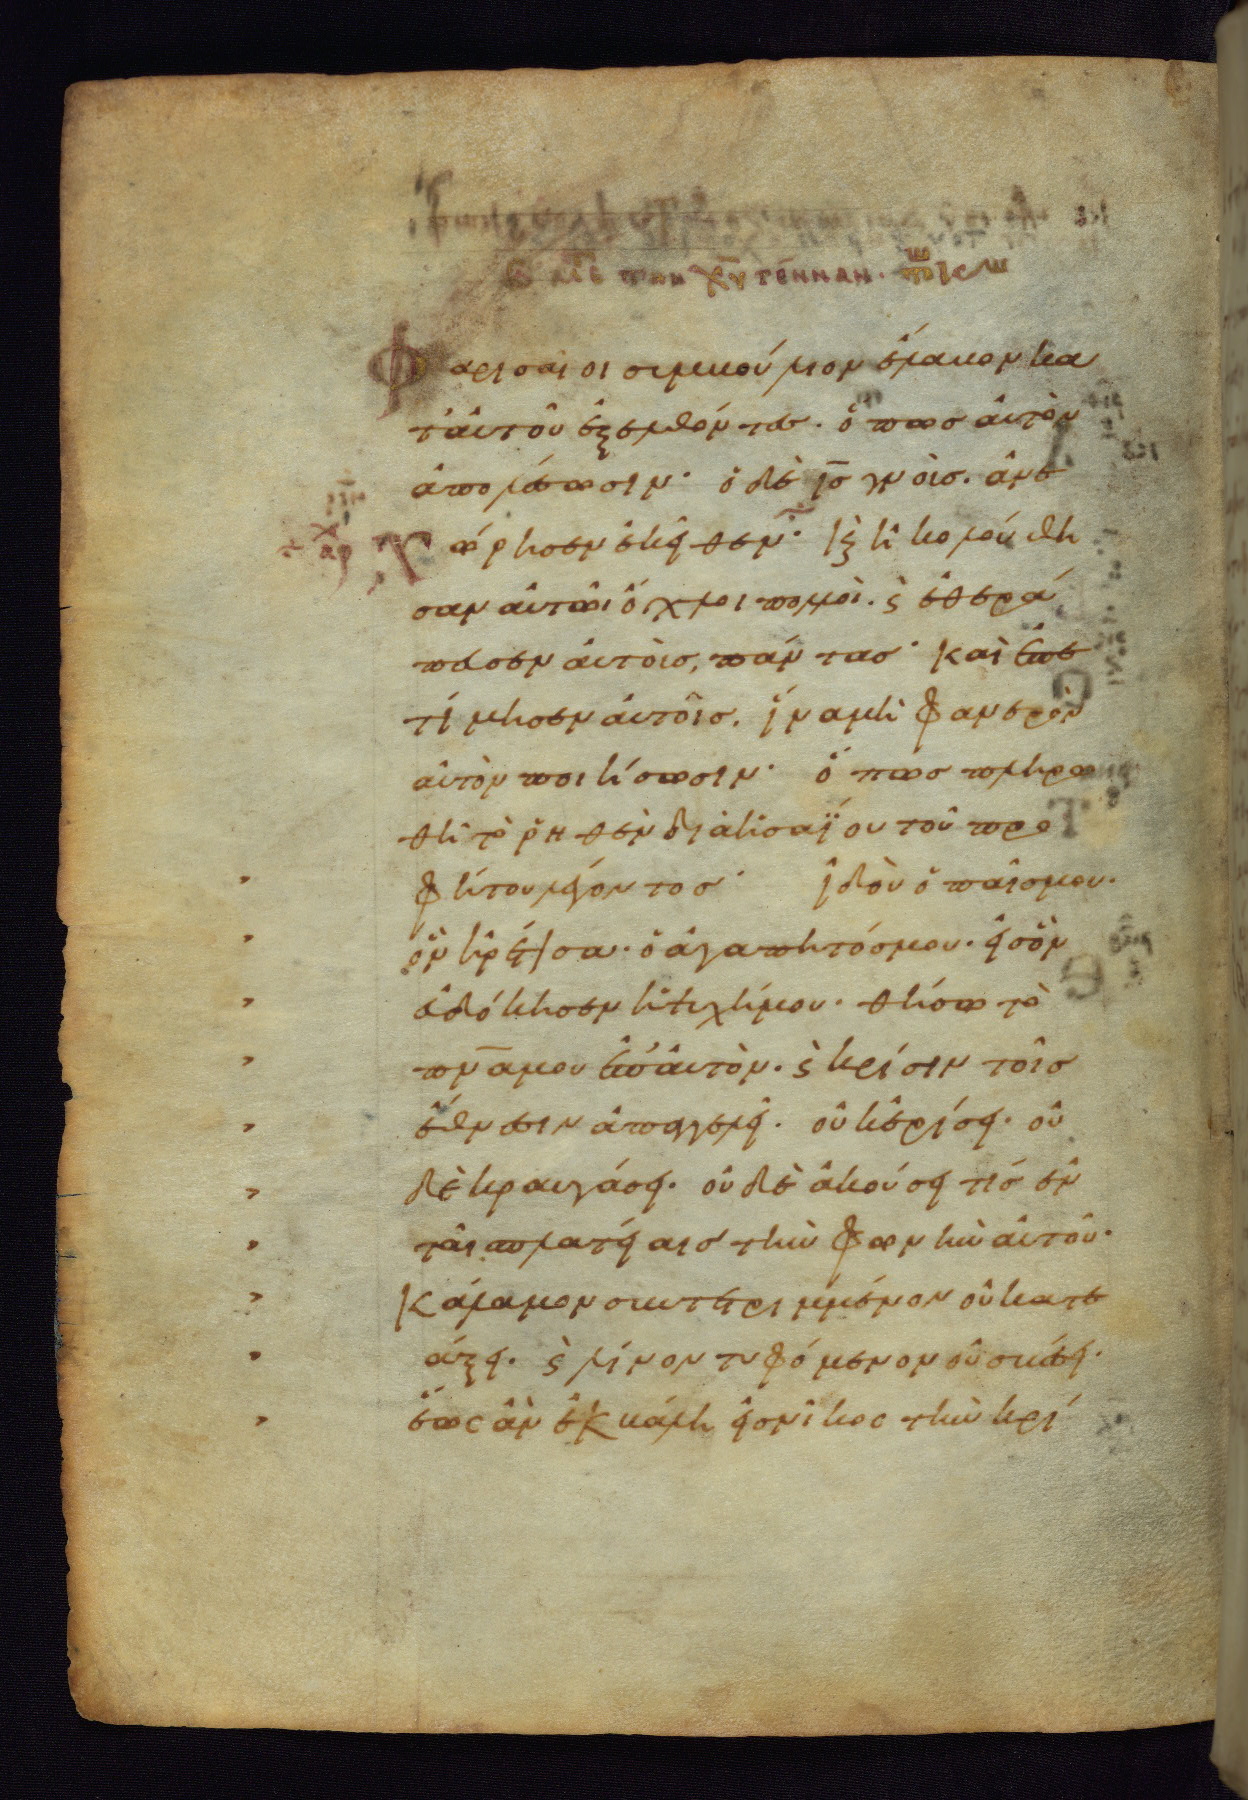 Φαρισαῖοι συμβούλιον ἔλαβον κα
τ αὐτοῦ ἐξελθόντες. ὅπως αὐτὸν
ἀπολέσωσιν. ὁ δὲ ις γνοὺς. ἀνε
χώρησεν ἐκεῖθεν. κὶ ἠκολούθη
σαν αὐτῶι ὄχλοι πολλοὶ. κὶ ἐθερά
πευσεν αὐτοὺς, πάντας. καὶ ἐπε
τίμησεν αὐτοῖς, ἵνα μὴ φανερὸν
αὐτὸν ποιήσωσιν. ὅπως πληρω
θῆ τὸ ῥηθὲν διὰ ἠσαΐου τοῦ προ
φήτου λέγοντος. ἰδοὺ ὁ παῖς μου.
ὃν ἡρέτισα. ὁ ἀγαπητός μου. εἰς ὃν
εὐδόκησεν ἡ ψυχή μου. θήσω τὸ
πνα μου ἐπ αὐτὸν. κὶ κρίσιν τοῖς
ἔθνεσιν ἀπαγγελεῖ. οὐκ ἐρίσει. οὐ
δὲ κραυγάσει. οὐδὲ ἀκούσει τίς ἐν
ταῖ πλατείαις τὴν φωνὴν αὐτοῦ.
κάλαμον συντετριμμένον οὐ κατε
άξει. κὶ λίνον τυφόμενον οὐ σβέσει.
ἕως ἂν ἐκβάλη εἰς νῖκος τὴν κρί